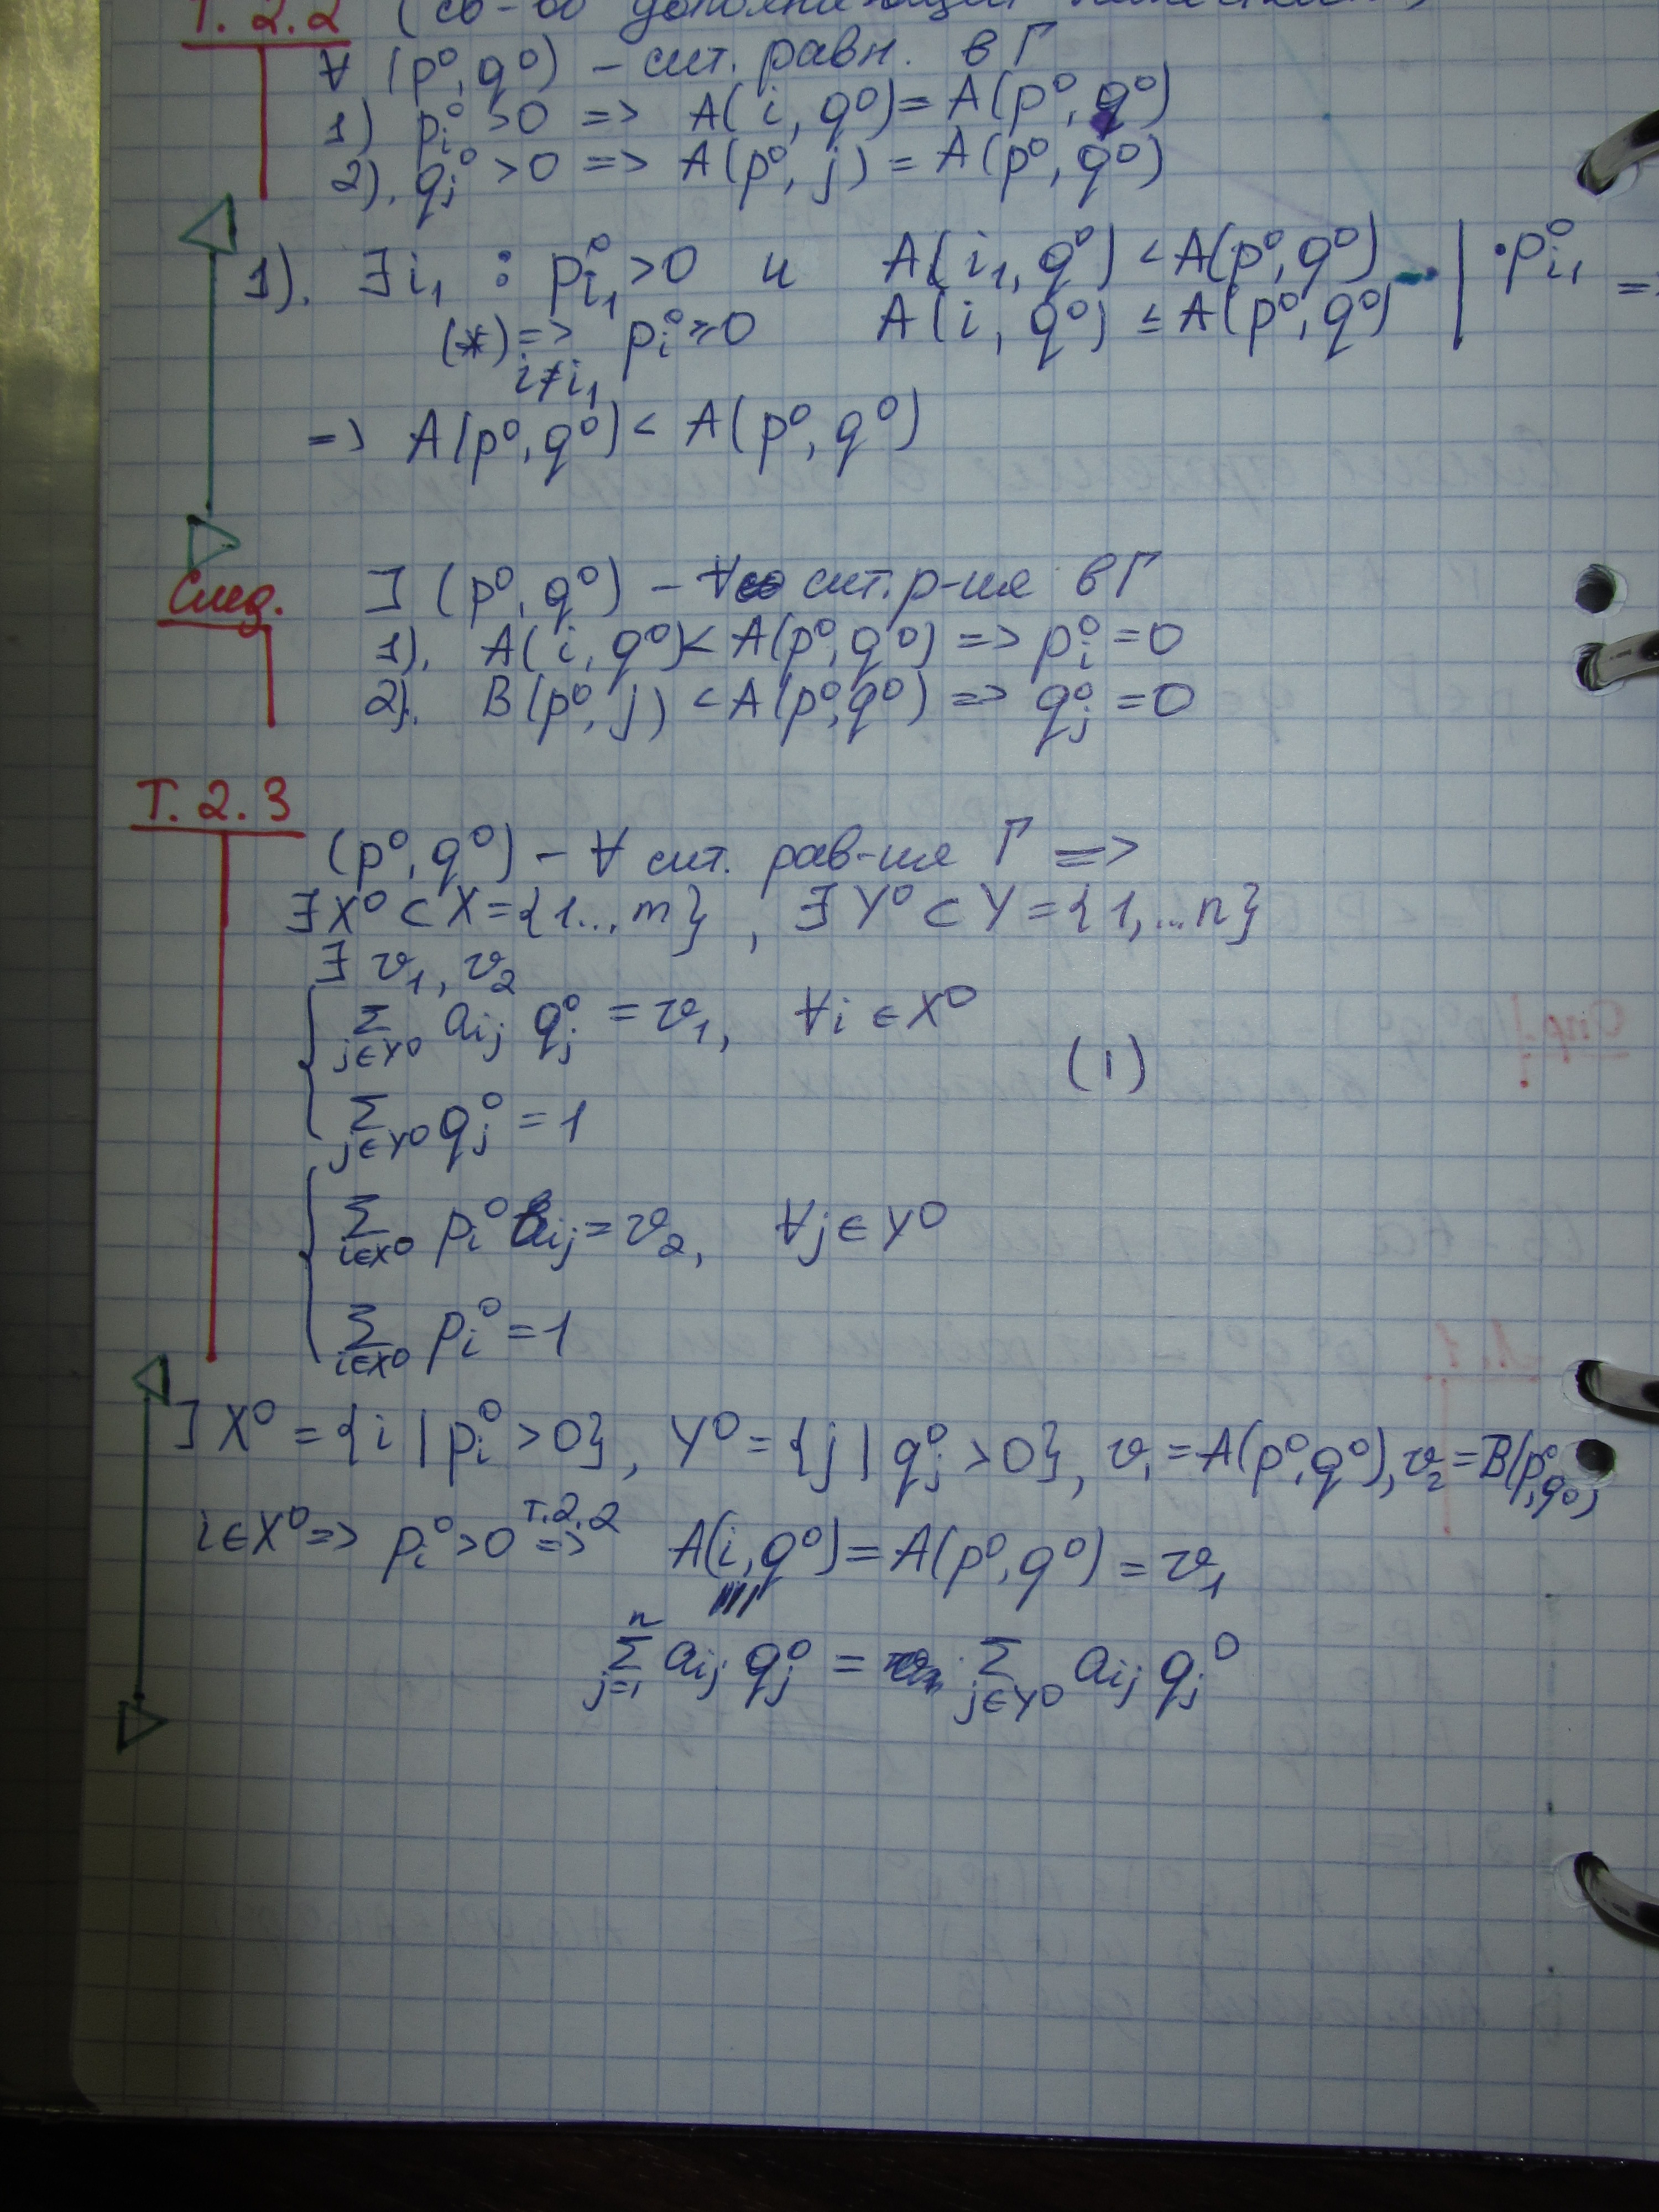 Т. 2.2 (св-во дополняющей нежёсткости)
∀ (p⁰, q⁰) – сит. равн. в Г
1) pᵢ⁰ >0 => A(i, q⁰) = A(p⁰, q⁰)
2). qⱼ⁰ >0 => A(p⁰, j) = A(p⁰, q⁰)
1). ∃ i₁ : pᵢ₁⁰ >0 и A(i₁, q⁰) < A(p⁰, q⁰) | · pᵢ₁⁰ =>
(*) => i≠i₁ pᵢ⁰ ≥0 A(i, q⁰) ≤ A(p⁰, q⁰)
=> A(p⁰, q⁰) < A(p⁰, q⁰)
След. ∃ (p⁰, q⁰) – ∀ сит. р-ия в Г
1). A(i, q⁰) < A(p⁰, q⁰) => pᵢ⁰ =0
2). B(p⁰, j) < A(p⁰, q⁰) => qⱼ⁰ =0
Т. 2.3
(p⁰, q⁰) – ∀ сит. рав-ия Г =>
∃ X⁰ ⊂ X = {1..., m}, ∃ Y⁰ ⊂ Y = {1, ... n}
∃ v₁, v₂
{ Σ j∈Y⁰ aᵢⱼ qⱼ⁰ = v₁, ∀i ∈ X⁰
(1)
Σ j∈Y⁰ qⱼ⁰ = 1
{ Σ i∈X⁰ pᵢ⁰ bᵢⱼ = v₂, ∀j ∈ Y⁰
Σ i∈X⁰ pᵢ⁰ = 1
∃ X⁰ = {i | pᵢ⁰ >0}, Y⁰ = {j | qⱼ⁰ >0}, v₁ = A(p⁰, q⁰), v₂ = B(p⁰, q⁰)
i∈X⁰ => pᵢ⁰ >0 Т.2.2 => A(i, q⁰) = A(p⁰, q⁰) = v₁
Σ j=1 n aᵢⱼ qⱼ⁰ = Σ j∈Y⁰ aᵢⱼ qⱼ⁰